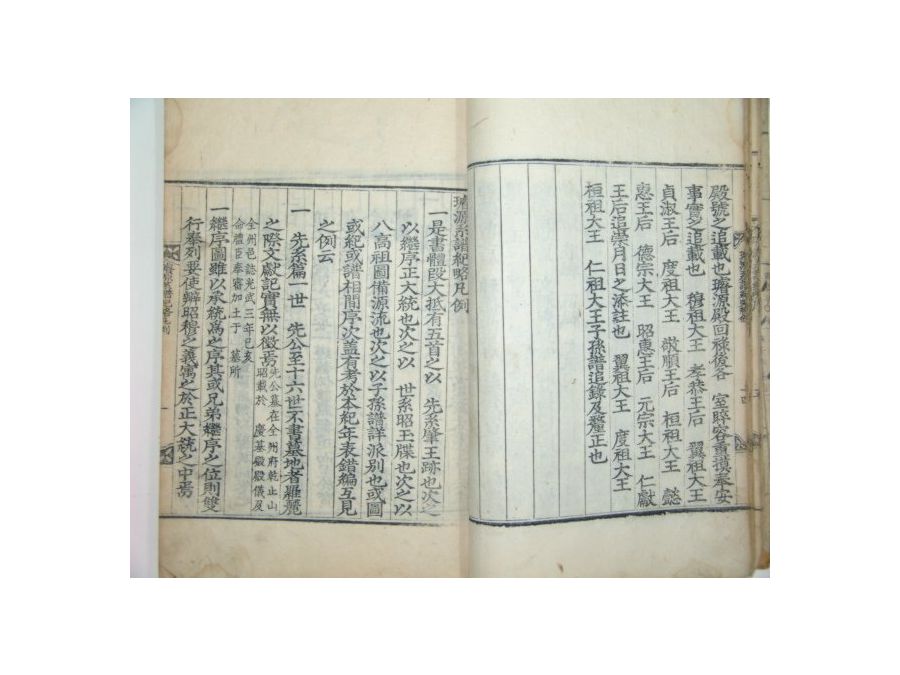 殿號之追載也璿源殿回祿後各 室晬容重摸奉安
事實之追載也 穆祖大王 孝恭王后 翼祖大王
貞淑王后 度祖大王 敬順王后 桓祖大王 懿
惠王后 德宗大王 昭惠王后 元宗大王 仁獻
王后追崇月日之添註也 翼祖大王 度祖大王
桓祖大王 仁祖大王子孫譜追錄及釐正也
璿源系譜紀略凡例
一是書體段大抵有五首之以 先系肇王跡也次之
以繼序正大統也次之以 世系昭王牒也次之以
八高祖圖備源流也次之以子孫譜詳派別也或圖
或紀或譜相間序次盖有考於本紀年表錯編互見
之例云
一 先系篇一世 先公至十六世不書墓地者羅麗
之際文獻記實無以徵焉 先公墓在全州府乾止山昭載於 慶基殿殿儀及
全州邑誌光武三年己亥命禮臣奉審加土于 墓所
一繼序圖雖以承統爲之序其或兄弟繼序之位則雙
行奉列要使辨昭穆之義寓之於正大統之中焉